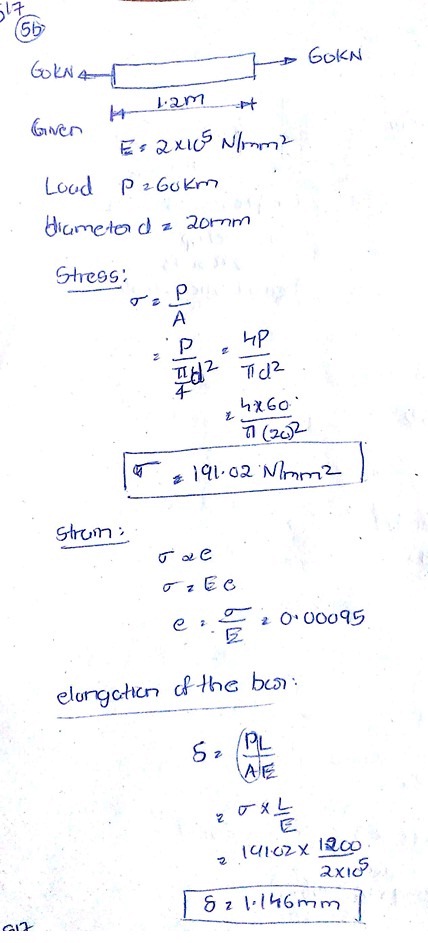 517
5b
60KN 60KN
1.2m
Given
E = 2×10⁵ N/mm²
Load P = 60Km
diameter d = 20mm
Stress:
σ = P/A
= P/(π/4 d²) = 4P/πd²
= 4×60/π(20)²
σ = 191.02 N/mm²
Strain:
σ ∝ e
σ = E e
e = σ/E = 0.00095
elongation of the bar:
δ = PL/AE
= σ × L/E
= 191.02 × 1200/2×10⁵
δ = 1.146mm